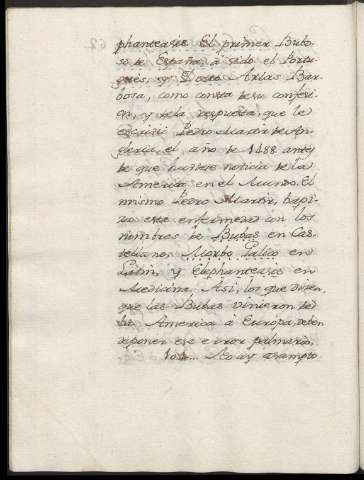 phanteasis. El primer Bubo-
so de España à sido el Portu-
gués, y Docto Arias Bar-
bosa, como consta de su confesi-
on, y de la respuesta, que le
escrivió Pedro Martir de An-
gleria, el año de 1488 antes
de que huviese noticia de la
America en el Mundo. El
mismo Pedro Martir, bapti-
zo esta enfermedad con los
nombres de Bubas en Cas-
tellano, Morbo Galico en
Latin, y Elephanteasis en
Medicina. Asi, los que dicen,
que las Bubas vinieron de
la America à Európa, deben
deponer ese error palmario.
104... No ay asumpto